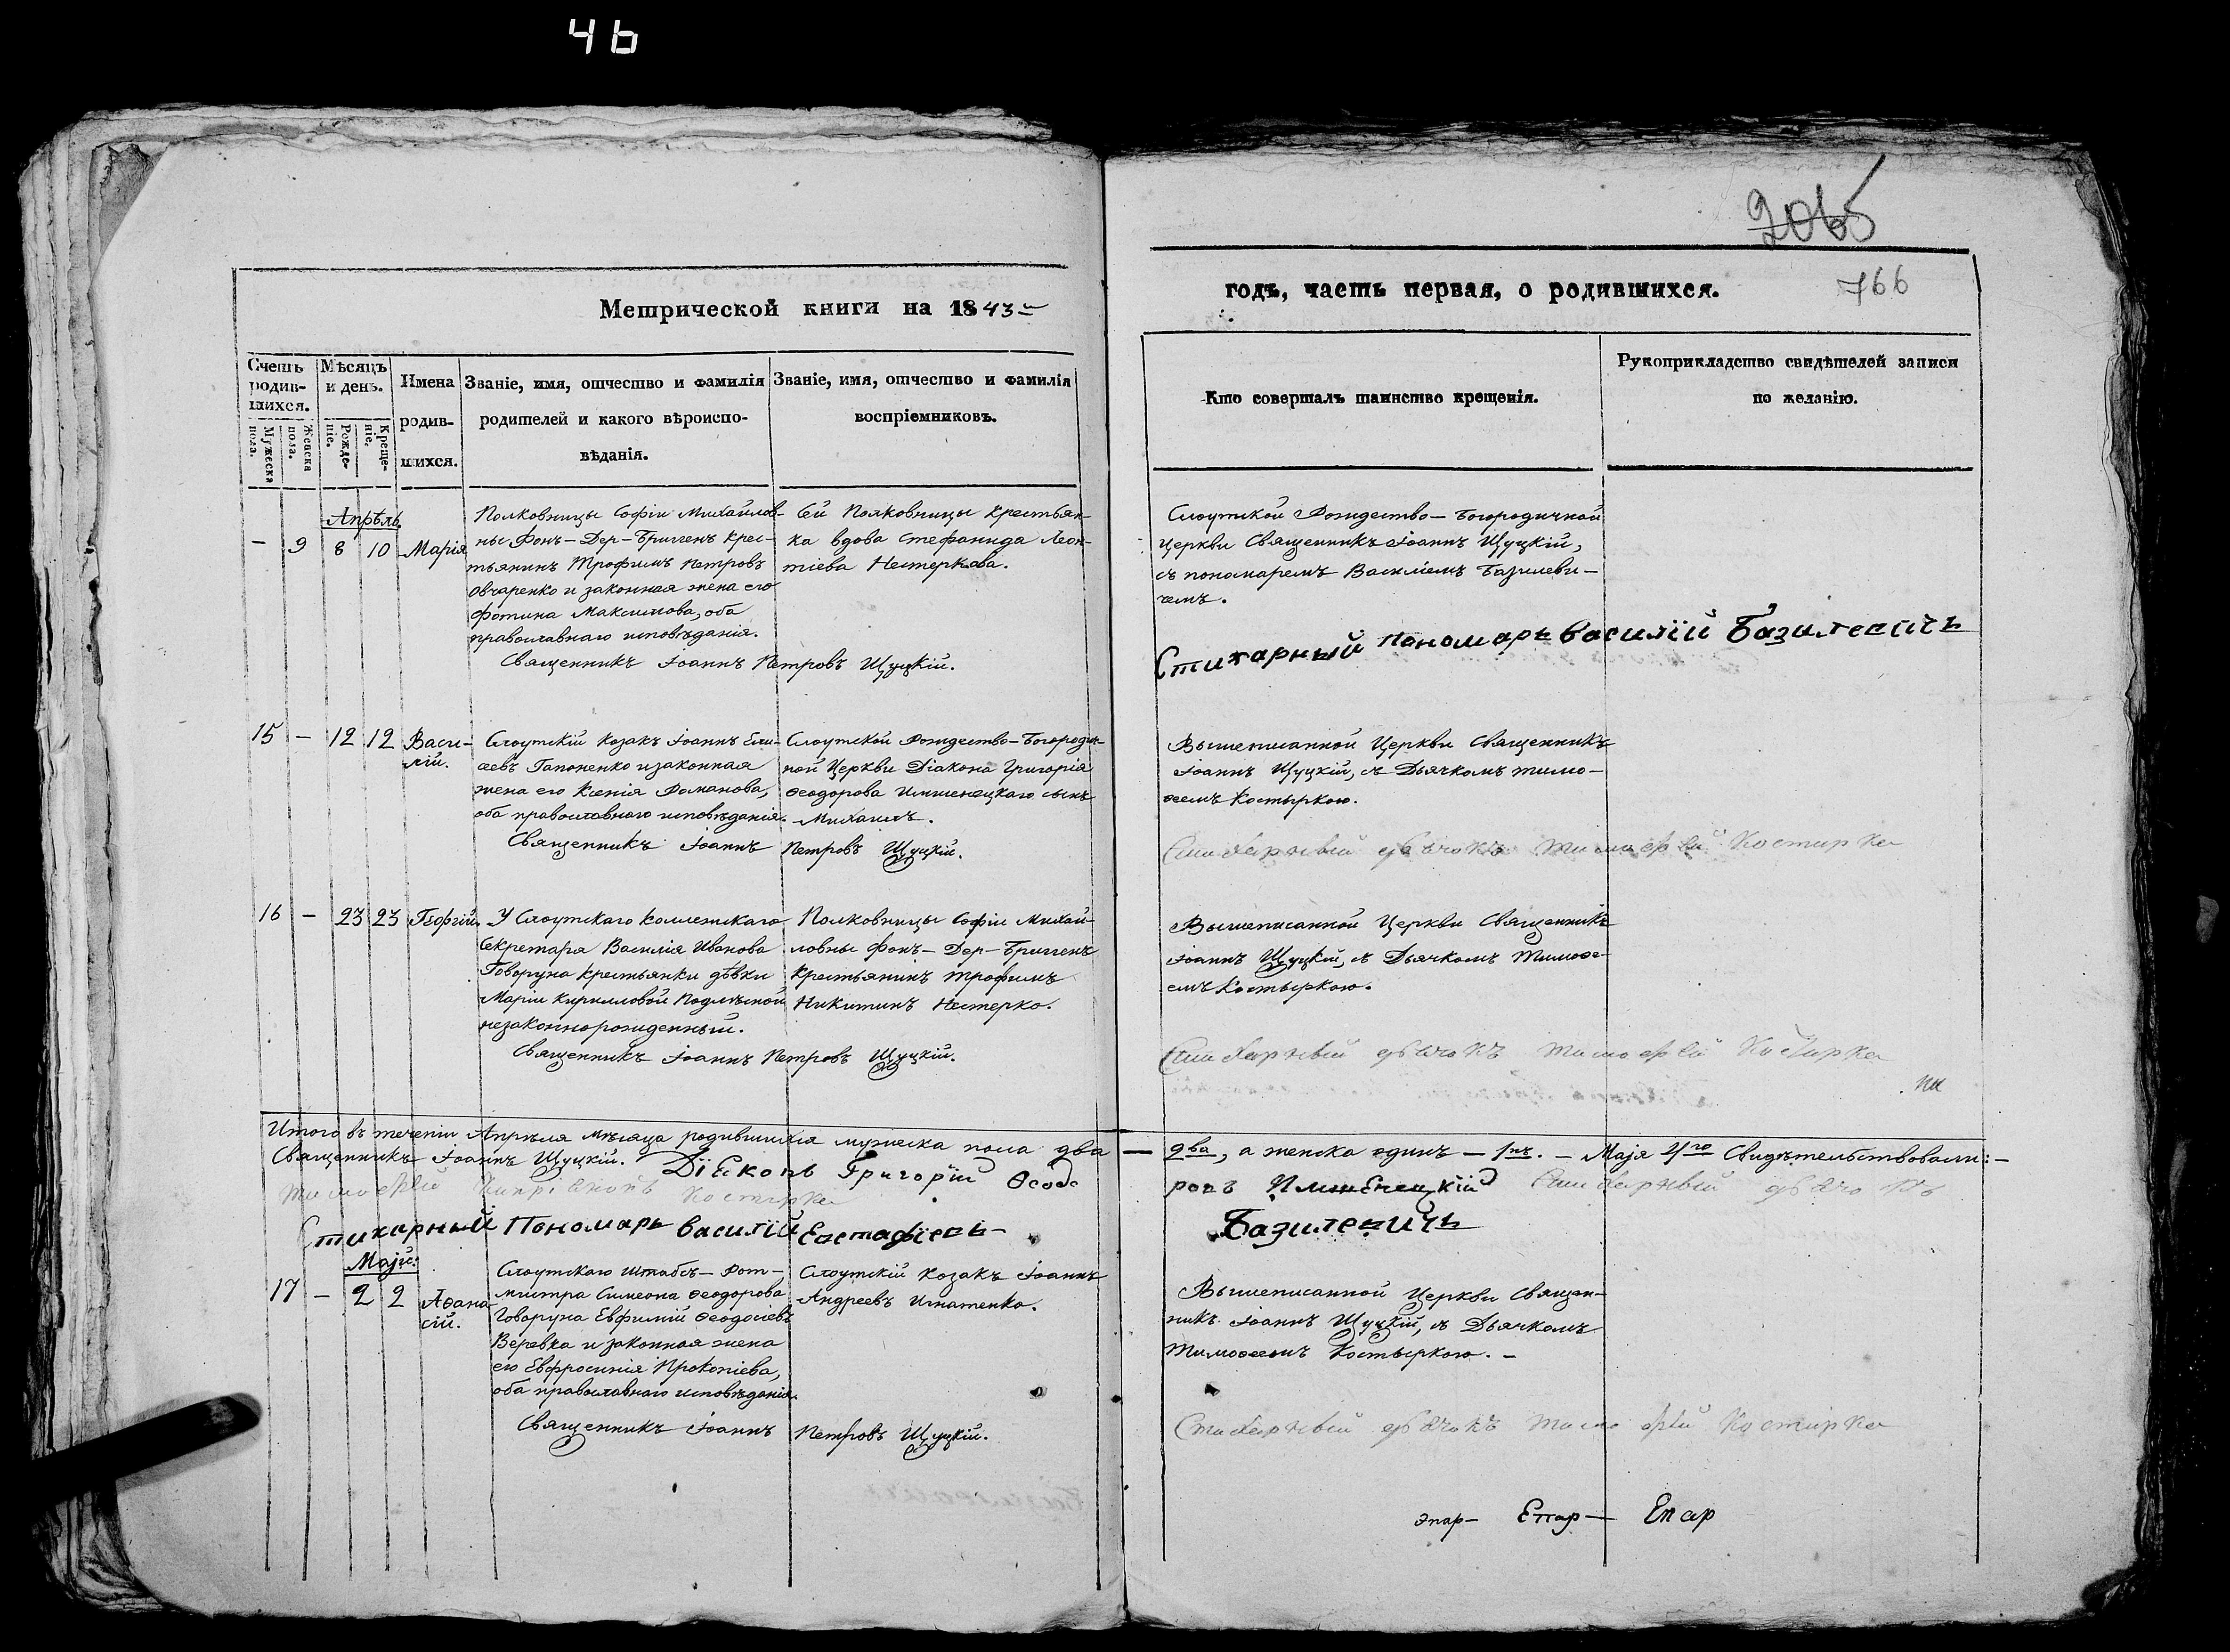 46
2065
766
Метрической книги на 1843
годъ, часть первая, о родившихся.
Счетъ родив-шихся.
Мужеска пола.
Женска пола.
Мѣсяцъ и день.
Рожде-ніе.
Креще-ніе.
Имена
родив-
шихся.
Званіе, имя, отчество и фамилія
родителей и какого вѣроиспо-
вѣданія.
Званіе, имя, отчество и фамилія
воспріемниковъ.
Кто совершалъ таинство крещенія.
Рукоприкладство свидѣтелей записи
по желанію.
Апрѣль.
— 9 8 10 Марія
Полковницы Софіи Михайлов-
ны Фонъ-Дер-Бриггенъ крес-
тьянинъ Трофимъ Петровъ
Овчаренко и законная жена его
Фотина Максимова, оба
православнаго исповѣданія.
Ей Полковницы крестьян-
ка вдова Стефанида Леон-
тіева Нестеркова.
Священникъ Іоаннъ Петровъ Щуцкій.
Слоутской Рождество-Богородичной
Церкви Священникъ Іоаннъ Щуцкій,
съ пономаремъ Василіемъ Базилеви-
чемъ.
Стихарный пономарь Василій Базилевичъ
15 — 12 12 Васи-
лій.
Слоутскій козакъ Іоаннъ Ели-
сеевъ Гапоненко и законная
жена его Ксенія Романова,
оба православнаго исповѣданія.
Слоутской Рождество-Богородич-
ной Церкви Діакона Григорія
Ѳеодорова Имшенецкаго сынъ
Михаилъ.
Священникъ Іоаннъ Петровъ Щуцкій.
Вышеписанной Церкви Священникъ
Іоаннъ Щуцкій, съ Дьячкомъ Тимо-
ѳеемъ Костыркою.
Стихарный дьячокъ Тимофей Костирка
16 — 23 23 Георгій.
У Слоутскаго Коллежскаго
Секретаря Василія Иванова
Говоруна крестьянки дѣвки
Маріи Кирилловой Подлѣсной
незаконнорожденный.
Полковницы Софіи Михай-
ловны фонъ-Дер-Бриггенъ
крестьянинъ Трофимъ
Никитинъ Нестерко.
Священникъ Іоаннъ Петровъ Щуцкій.
Вышеписанной Церкви Священникъ
Іоаннъ Щуцкій, съ Дьячкомъ Тимоѳе-
емъ Костыркою.
Стихарный дьячокъ Тимофей Костирка
Итого въ теченіи Апрѣля мѣсяца родившихся мужеска пола два — два, а женска одинъ — 1нъ. — Маія 4го Свидѣтельствовали:—
Священникъ Іоаннъ Щуцкій. Діаконъ Григорій Ѳеодо ровъ Имшенецкій Стихарный дьячокъ
Тимофей Кипріановъ Костирка
Стихарный Пономарь Василій Евстафіевъ Базилевичъ
Маій:
17 — 2 2 Аѳана-
сій.
Слоутскаго Штабсъ-Рот-
мистра Симеона Ѳеодорова
Говоруна Евфимій Ѳеодосіевъ
Веревка и законная жена
его Евфросинія Прокопіева,
оба православнаго исповѣданія.
Слоутскій козакъ Іоаннъ
Андреевъ Игнатенко.
Священникъ Іоаннъ Петровъ Щуцкій.
Вышеписанной Церкви Священ-
никъ Іоаннъ Щуцкій, съ Дьячкомъ
Тимоѳеемъ Костыркою. —
Стихарный дьячокъ Тимофей Костирка
Епар— Епар— Епар